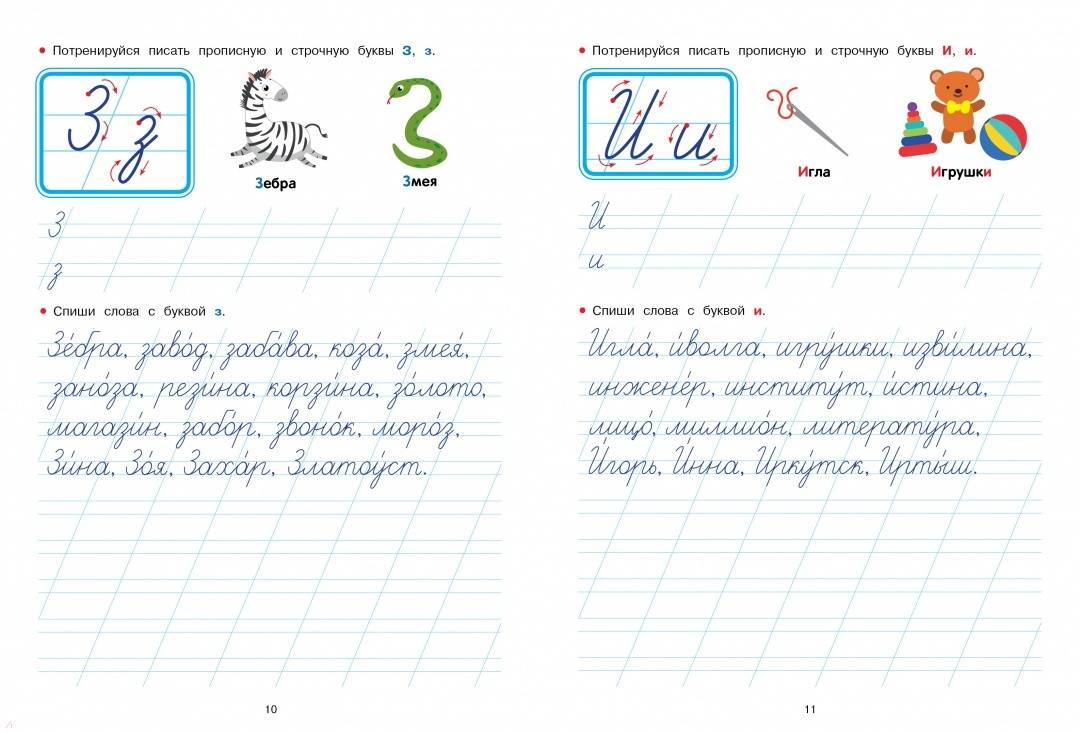 Потренируйся писать прописную и строчную буквы З, з.
З з
Зебра
Змея
З
з
Спиши слова с буквой з.
Зе́бра, заво́д, заба́ва, коза́, змея́,
зано́за, рези́на, корзи́на, зо́лото,
магази́н, забо́р, звоно́к, моро́з,
Зи́на, Зо́я, Заха́р, Златоу́ст.
10
Потренируйся писать прописную и строчную буквы И, и.
И и
Игла
Игрушки
И
и
Спиши слова с буквой и.
Игла́, и́волга, игру́шки, изви́лина,
инжене́р, институ́т, и́стина,
лицо́, миллио́н, литерату́ра,
И́горь, И́нна, Ирку́тск, Ирты́ш.
11